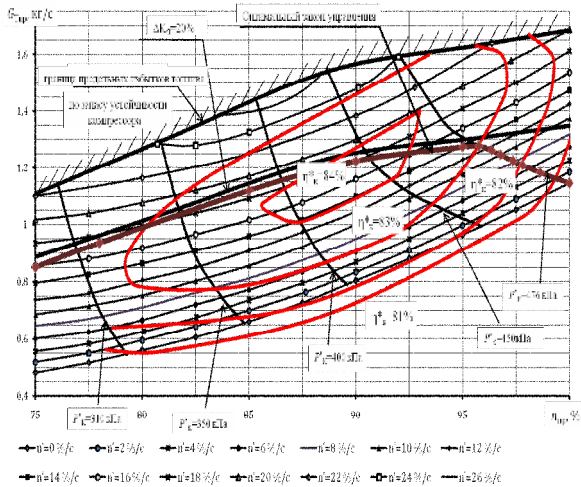 Gт.пр, кг/с
ΔKу=20%
Оптимальный закон управления
граница предельных избытков топлива
по запасу устойчивости
компрессора
1,6
1,4
1,2
1
0,8
0,6
0,4
η*к=84%
η*к=83%
η*к=82%
η*к=81%
P'к=476 кПа
P'к=450кПа
P'к=400 кПа
P'к=350 кПа
P'к=310 кПа
75 80 85 90 95 nпр, %
n'=0 %/с n'=2 %/с n'=4 %/с n'=6 %/с n'=8 %/с n'=10 %/с n'=12 %/с
n'=14 %/с n'=16 %/с n'=18 %/с n'=20 %/с n'=22 %/с n'=24 %/с n'=26 %/с